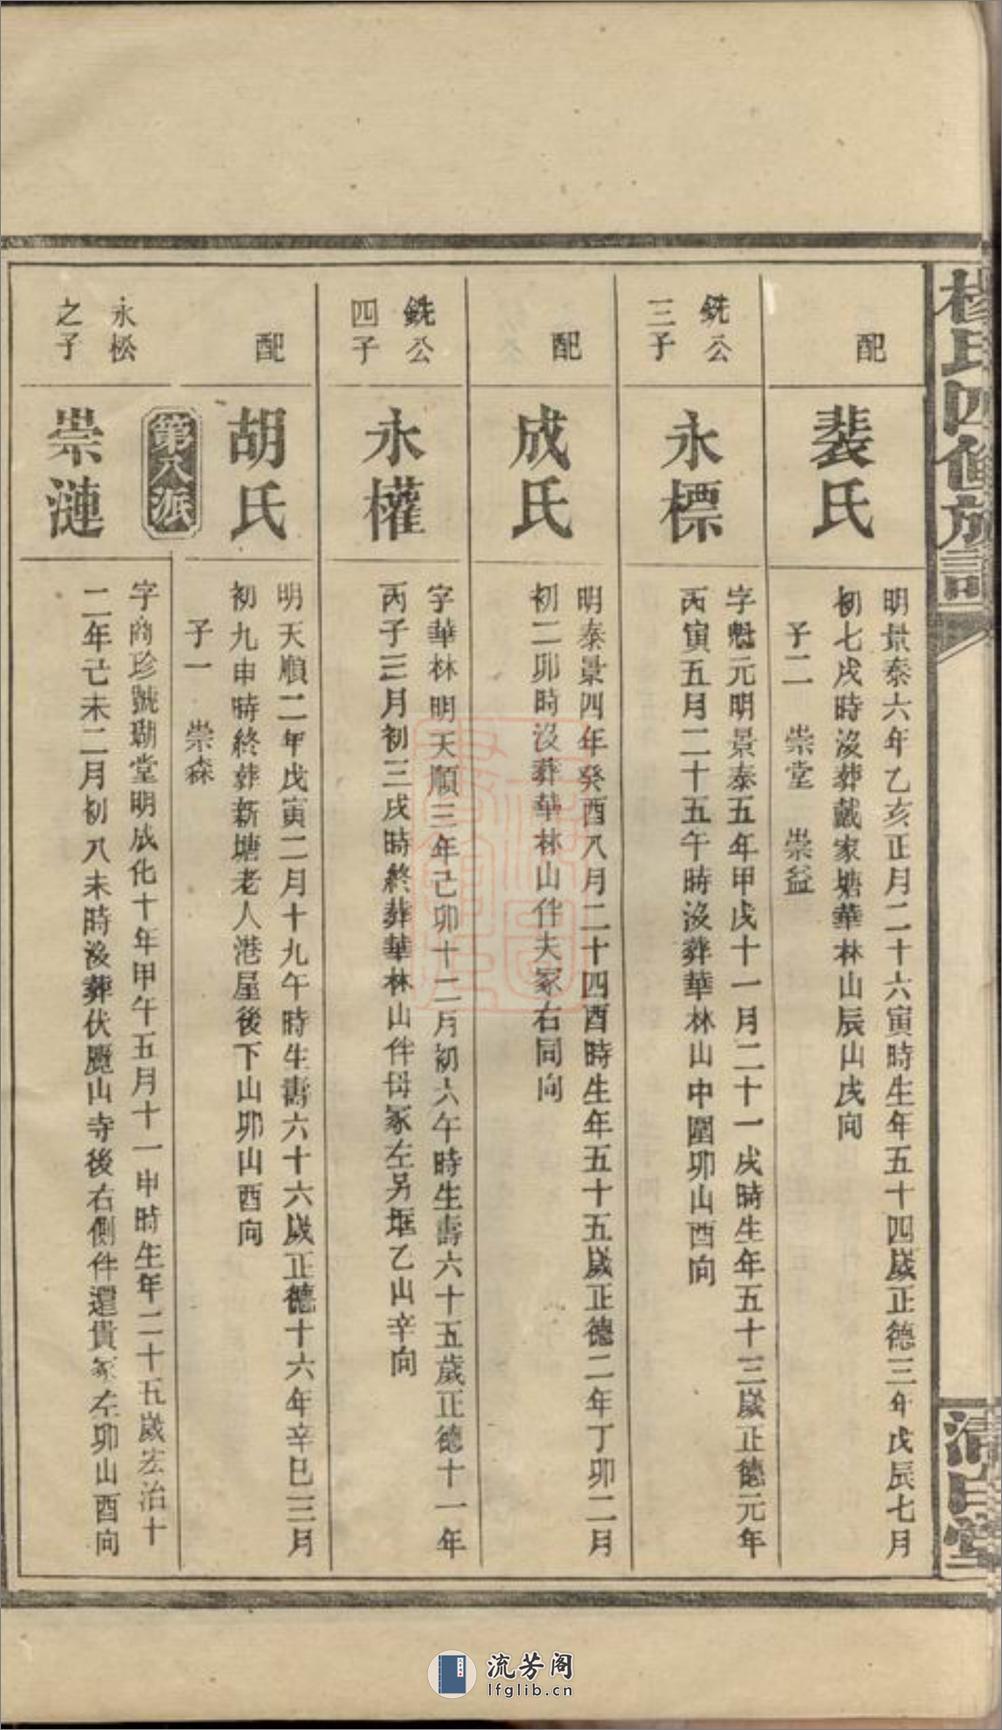 楊氏四修族譜
清白堂
配
裴氏
明景泰六年乙亥正月二十六寅時生年五十四歲正德三年戊辰七月
初七戌時沒葬戴家塘華林山辰山戌向
子二 崇堂 崇益
銑公
三子
永標
字魁元明景泰五年甲戌十一月二十一戌時生年五十三歲正德元年
丙寅五月二十五午時沒葬華林山中圍卯山酉向
配
成氏
明泰景四年癸酉八月二十四酉時生年五十五歲正德二年丁卯二月
初二卯時沒葬華林山伴夫冢右同向
銑公
四子
永權
字華林明天順三年己卯十二月初六午時生壽六十五歲正德十一年
丙子三月初三戌時終葬華林山伴母冢左另堆乙山辛向
配
胡氏
明天順二年戊寅二月十九午時生壽六十六歲正德十六年辛巳三月
初九申時終葬新塘老人港屋後下山卯山酉向
子一 崇森
第八派
永松
之子
崇漣
字商珍號瑚堂明成化十年甲午五月十一申時生年二十五歲宏治十
二年己未二月初八未時沒葬伏鷹山寺後右側伴還貴冢左卯山酉向
流芳阁
lfglib.cn